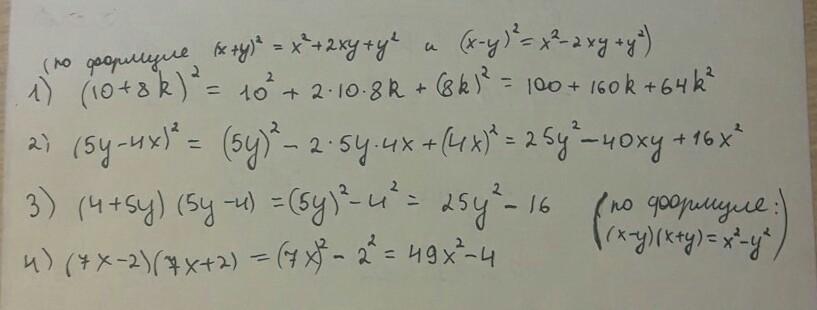 (по формуле (x+y)² = x²+2xy+y² и (x-y)² = x²-2xy+y²)
1) (10+8k)² = 10² + 2·10·8k + (8k)² = 100+160k+64k²
2) (5y-4x)² = (5y)² - 2·5y·4x+(4x)² = 25y²-40xy+16x²
3) (4+5y)(5y-4) = (5y)²-4² = 25y²-16 (по формуле:
(x-y)(x+y)=x²-y²)
4) (7x-2)(7x+2) = (7x)²-2² = 49x²-4